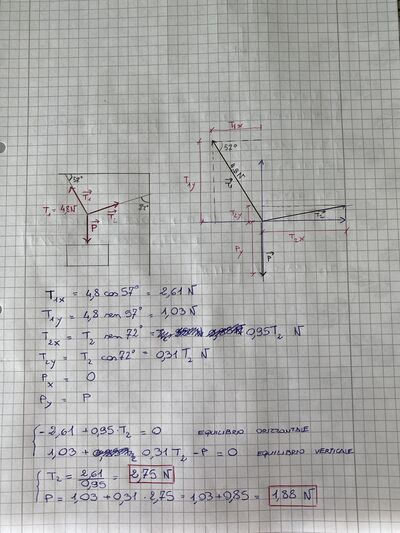 T1x
52°
4,8N
T⃗1
T1y
T2y
T⃗2
T2x
Py
P⃗
T⃗1
T1 = 4,8N
T⃗2
P⃗
T1x = 4,8 cos 57° = 2,61 N
T1y = 4,8 sen 57° = 1,03 N
T2x = T2 sen 72° = 0,95 T2 N
T2y = T2 cos 72° = 0,31 T2 N
Px = 0
Py = P
- 2,61 + 0,95 · T2 = 0 EQUILIBRIO ORIZZONTALE
1,03 + 0,31 T2 - P = 0 EQUILIBRIO VERTICALE
T2 = 2,61 / 0,95 = 2,75 N
P = 1,03 + 0,31 · 2,75 = 1,03 + 0,85 = 1,88 N